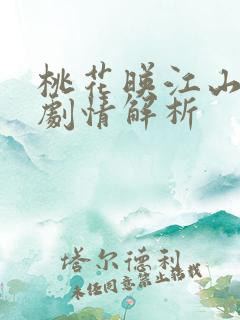 桃花暎江山
劇情解析
塔尔德利
未经同意禁止搭载